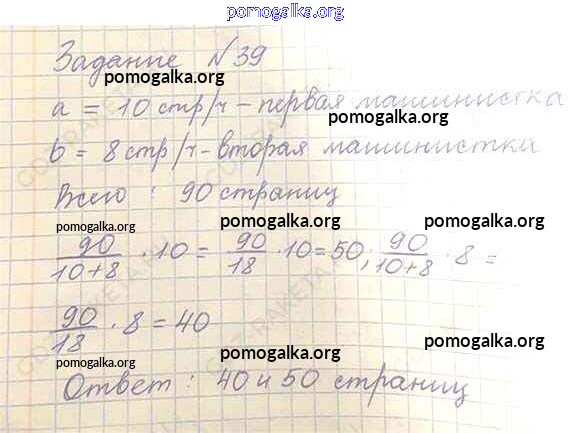 pomogalka.org
Задание №39
pomogalka.org pomogalka.org
a = 10 стр/ч - первая машинистка
pomogalka.org
b = 8 стр/ч - вторая машинистка
Всего : 90 страниц
pomogalka.org pomogalka.org pomogalka.org
90/10+8 · 10 = 90/18 · 10 = 50; 90/10+8 · 8 =
90/18 · 8 = 40
pomogalka.org pomogalka.org pomogalka.org
Ответ : 40 и 50 страниц
pomogalka.org